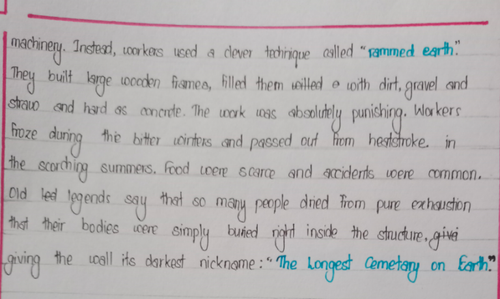 machinery. Instead, workers used a clever technique called "rammed earth."
They built large wooden frames, filled them willed a with dirt, gravel and
straw and hard as concrete. The work was absolutely punishing. Workers
froze during the bitter winters and passed out from heatstroke. in
the scorching summers. Food were scarce and accidents were common.
Old led legends say that so many people dried from pure exhaustion
that their bodies were simply buried right inside the structure, givi
giving the wall its darkest nickname: "The Longest Cemetary on Earth."